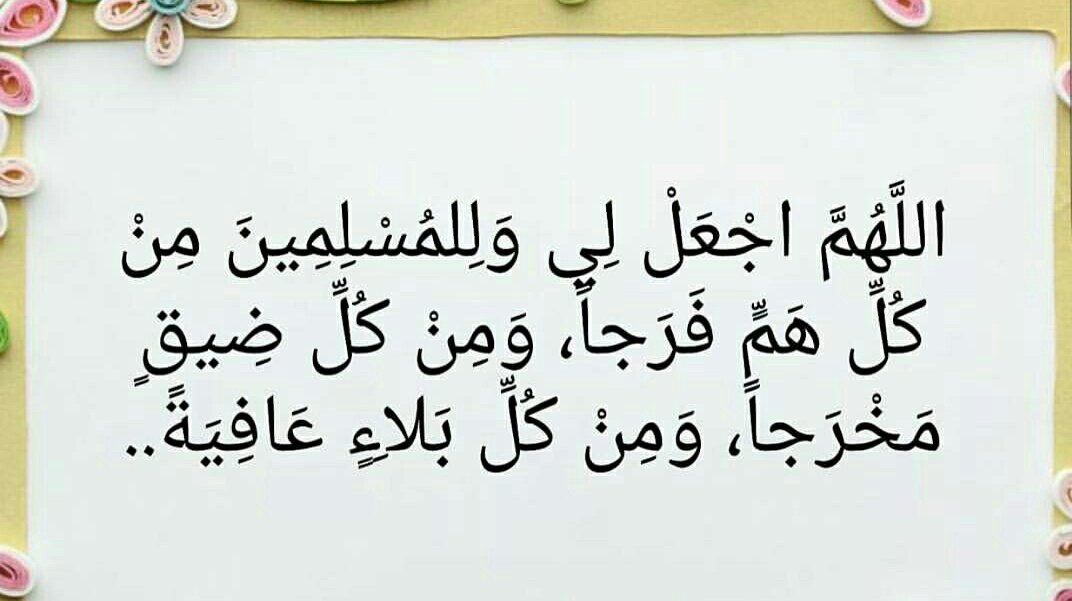 اللَّهُمَّ اجْعَلْ لِي وَلِلمُسْلِمِينَ مِنْ
كُلِّ هَمٍّ فَرَجاً، وَمِنْ كُلِّ ضِيقٍ
مَخْرَجاً، وَمِنْ كُلِّ بَلاءٍ عَافِيَةً..